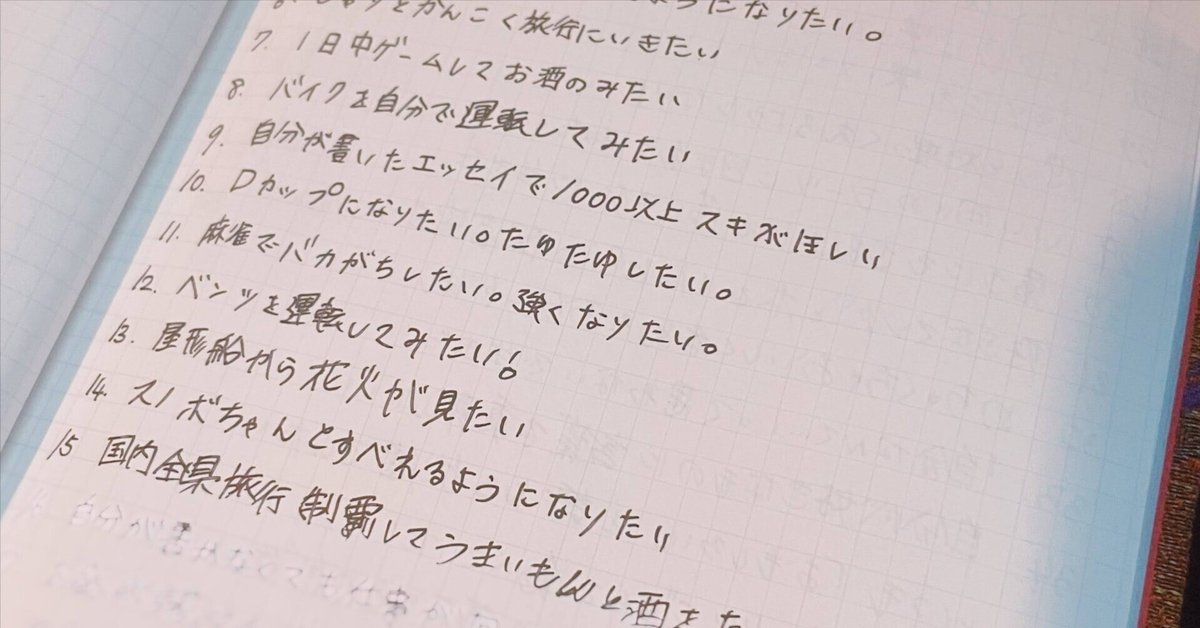 うになりたい。
かんこく旅行にいきたい
7. 1日中ゲームしてお酒のみたい
8. バイクを自分で運転してみたい
9. 自分が書いたエッセイで1000以上スキがほしい
10. Dカップになりたい。たゆたゆしたい。
11. 麻雀でバカがちしたい。強くなりたい。
12. ベンツを運転してみたい!
13. 屋形船から花火が見たい
14. スノボちゃんとすべれるようになりたい
15 国内全県旅行制覇してうまいもんと酒をた